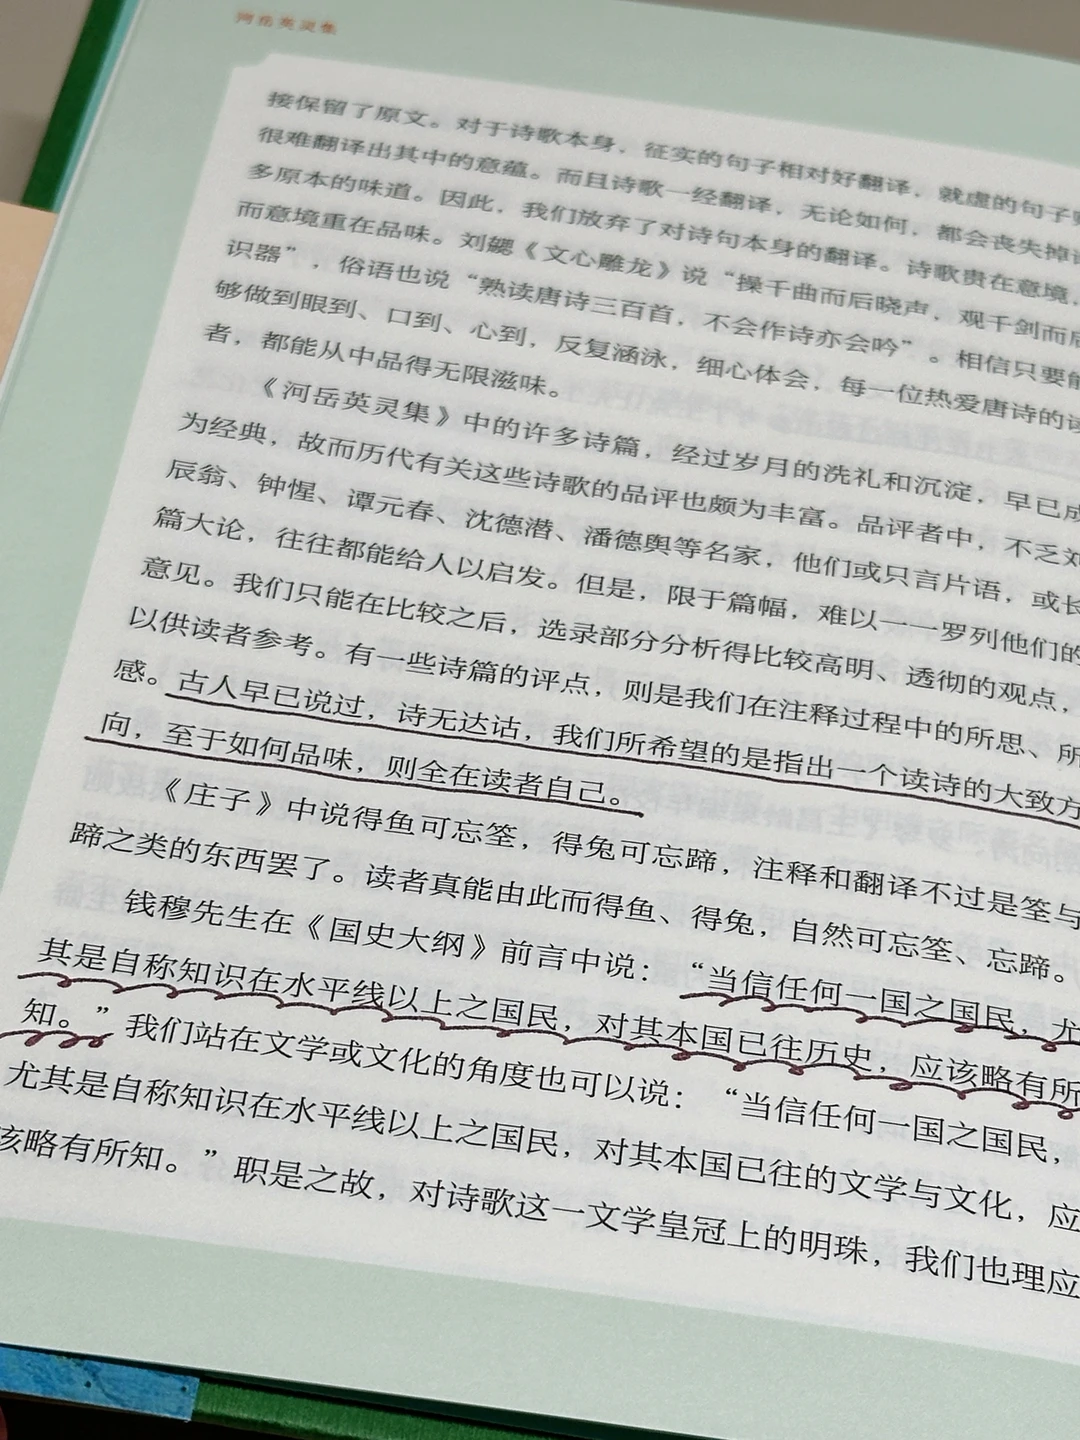 河岳英灵集
接保留了原文。对于诗歌本身，征实的句子相对好翻译，就虚的句子
很难翻译出其中的意蕴。而且诗歌一经翻译，无论如何，都会丧失掉
多原本的味道。因此，我们放弃了对诗句本身的翻译。诗歌贵在意境，
而意境重在品味。刘勰《文心雕龙》说“操千曲而后晓声，观千剑而后
识器”，俗语也说“熟读唐诗三百首，不会作诗亦会吟”。相信只要能
够做到眼到、口到、心到，反复涵泳，细心体会，每一位热爱唐诗的读
者，都能从中品得无限滋味。
《河岳英灵集》中的许多诗篇，经过岁月的洗礼和沉淀，早已成
为经典，故而历代有关这些诗歌的品评也颇为丰富。品评者中，不乏刘
辰翁、钟惺、谭元春、沈德潜、潘德舆等名家，他们或只言片语，或长
篇大论，往往都能给人以启发。但是，限于篇幅，难以一一罗列他们的
意见。我们只能在比较之后，选录部分分析得比较高明、透彻的观点，
以供读者参考。有一些诗篇的评点，则是我们在注释过程中的所思、所
感。古人早已说过，诗无达诂，我们所希望的是指出一个读诗的大致方
向，至于如何品味，则全在读者自己。
《庄子》中说得鱼可忘筌，得兔可忘蹄，注释和翻译不过是筌与
蹄之类的东西罢了。读者真能由此而得鱼、得兔，自然可忘筌、忘蹄。
钱穆先生在《国史大纲》前言中说：“当信任何一国之国民，尤
其是自称知识在水平线以上之国民，对其本国已往历史，应该略有所
知。”我们站在文学或文化的角度也可以说：“当信任何一国之国民，
尤其是自称知识在水平线以上之国民，对其本国已往的文学与文化，应
该略有所知。”职是之故，对诗歌这一文学皇冠上的明珠，我们也理应